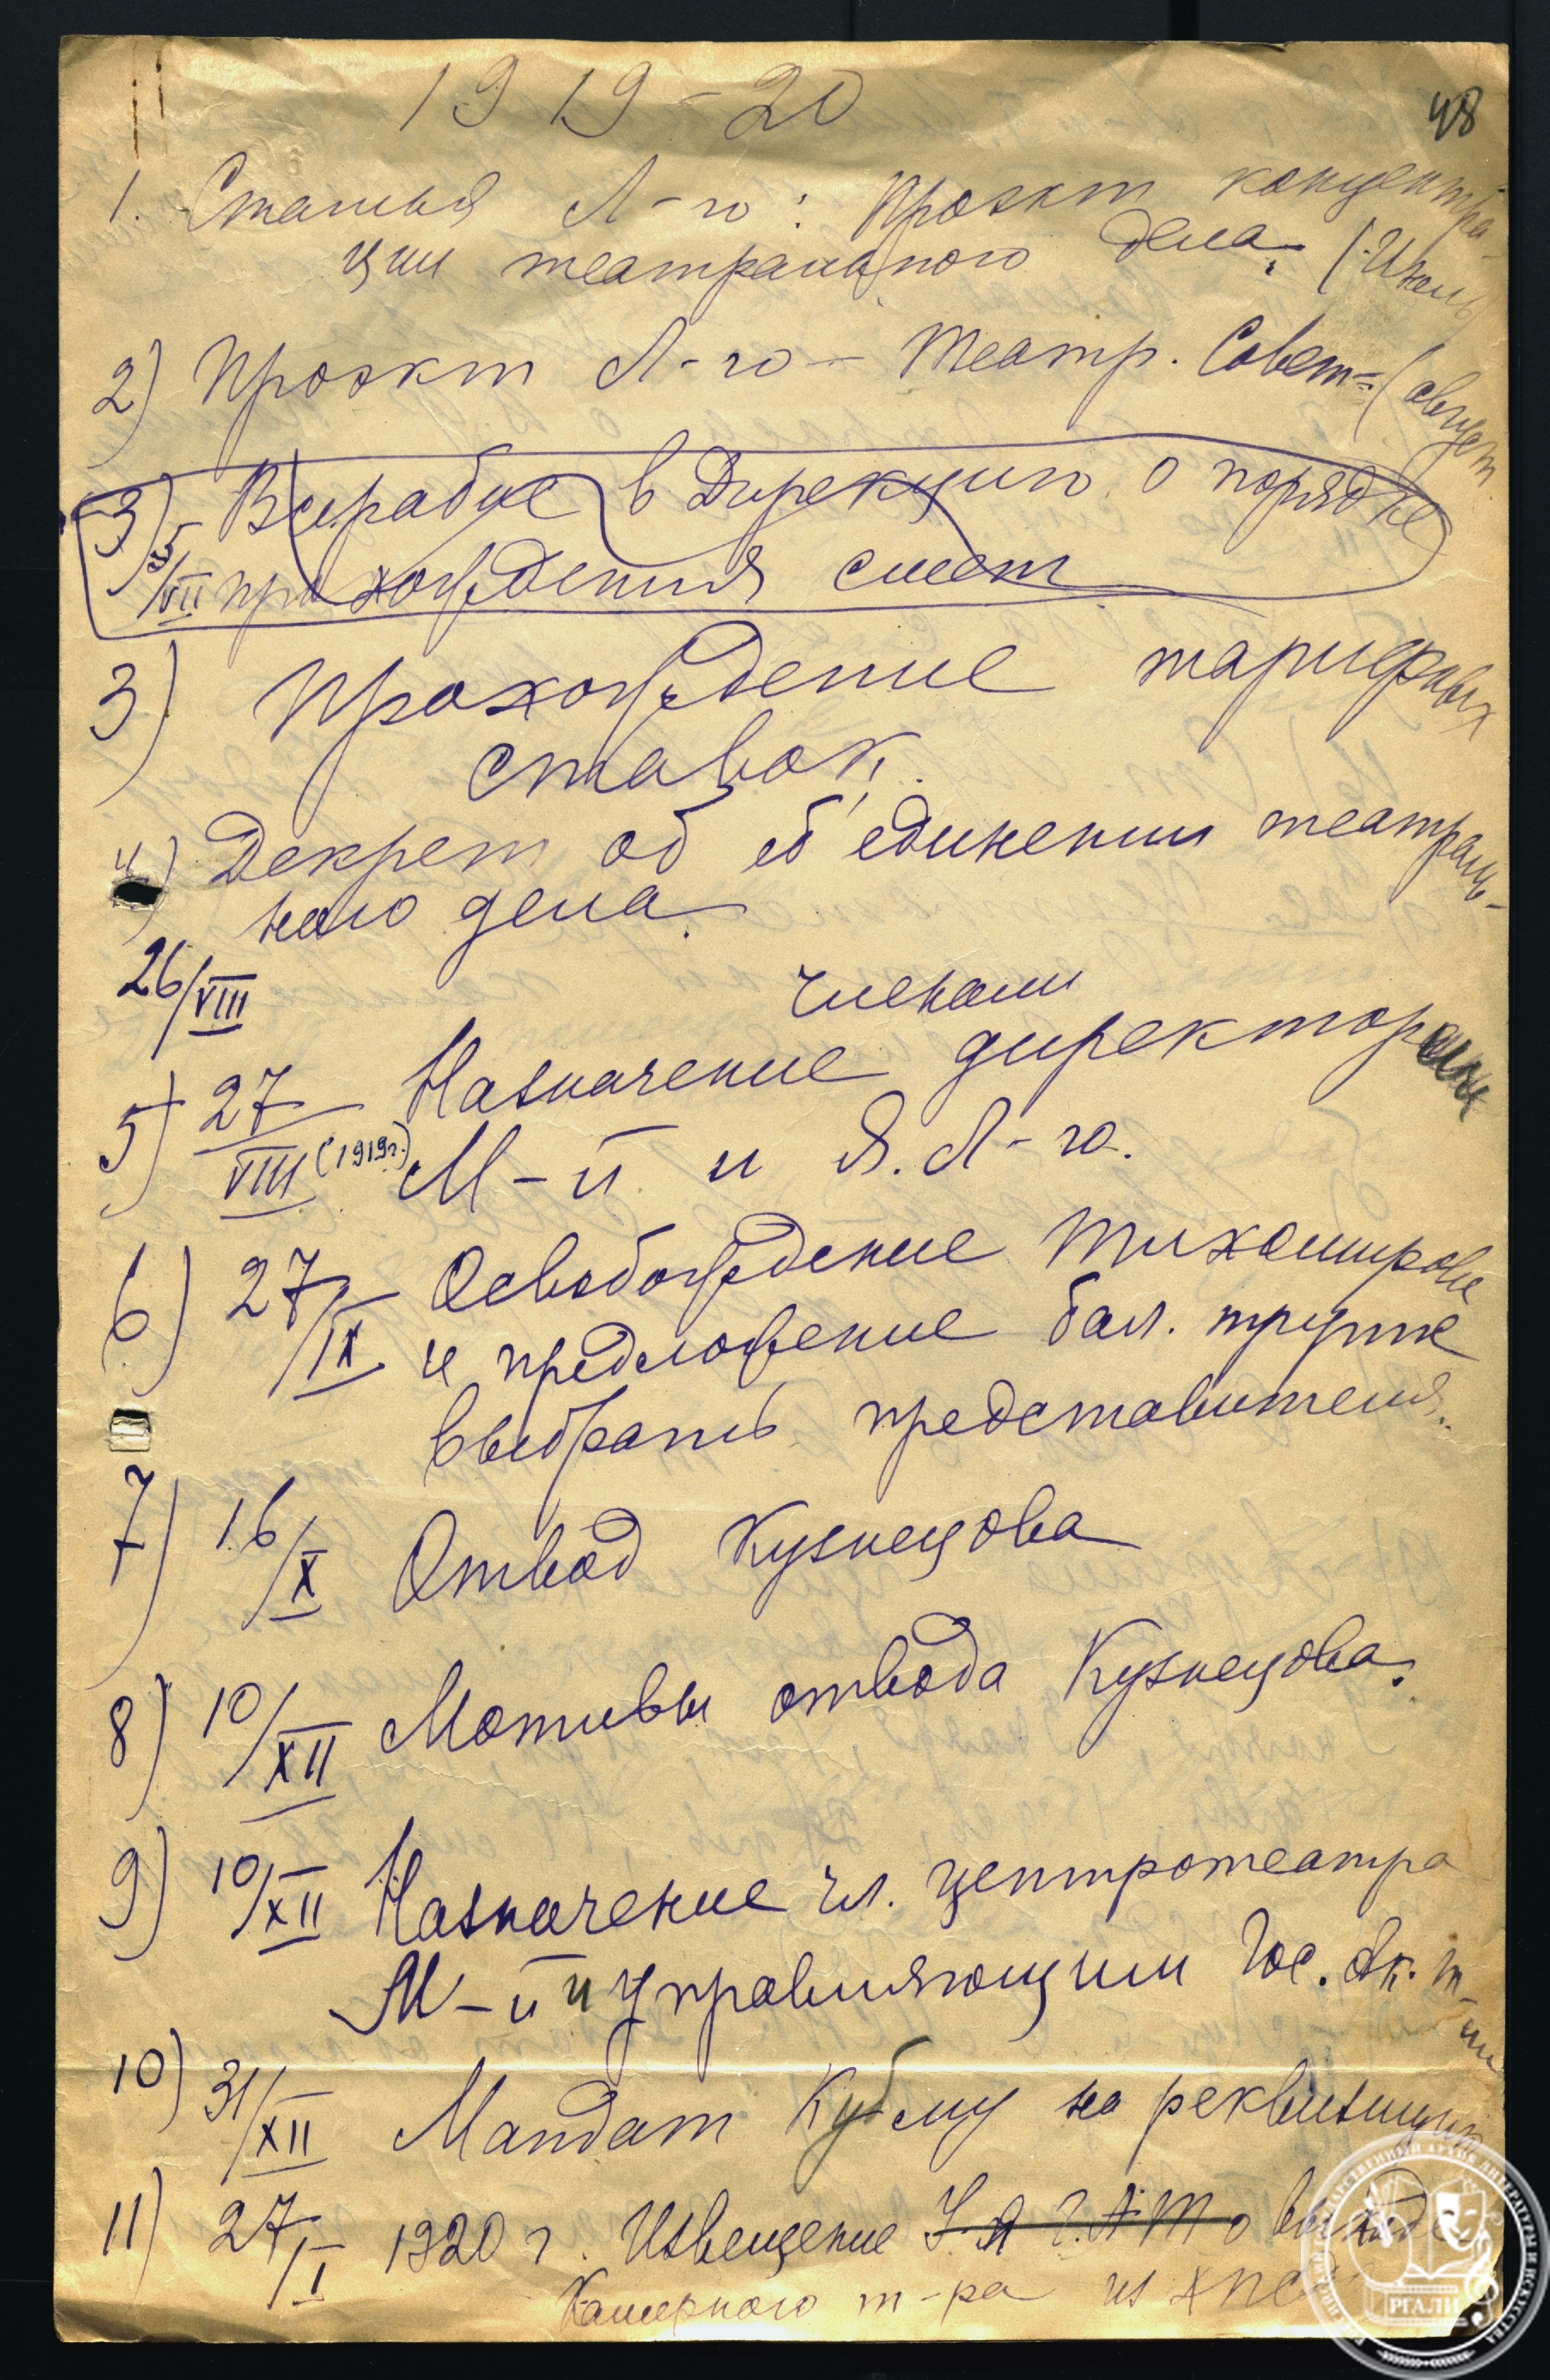 48
1919-20
1. Статья Л-го: Проэкт концентра-
ции театрального дела. (Июль)
2) Проэкт Л-го - Театр. Совет= (август
3) 5/VII В Цурабис в Дирекцию о порядке
прохождения смет
3) Прохождение тарифных
ставок.
4) Декрет об об'единении театраль-
ного дела.
26/VIII
членами
5) 27/VIII (1919г.) Назначение директор
М-й и Я. Л-го.
6) 27/IX Освобождение Тихомирова
и предложение бал. труппе
выбрать представителя.
7) 16/X Отвод Кузнецова
8) 10/XII Мотивы отвода Кузнецова.
9) 10/XII Назначение чл. центротеатра
М-й и управляющим Гос. Ак. т-ми
10) 31/XII Мандат Кубому на реквизицию
11) 27/I 1920 г. Извещение У-я Г.А.Т о выходе
Камерного т-ра из
РГАЛИ